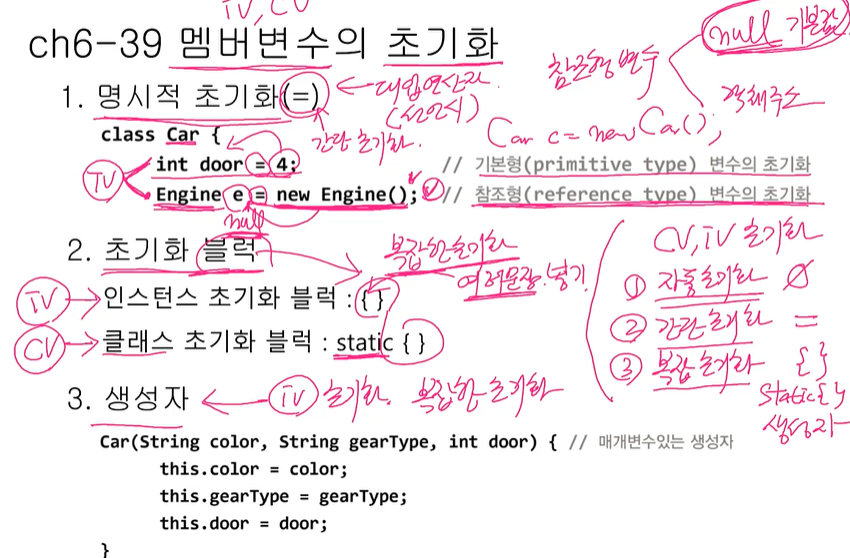 iv, cv
ch6-39 멤버변수의 초기화
null 기본값
참조형 변수
객체주소
1. 명시적 초기화(=) ← 대입연산자
(선언시)
간단 초기화.
Car c = new Car();
class Car {
int door = 4; // 기본형(primitive type) 변수의 초기화
iv
Engine e = new Engine(); // 참조형(reference type) 변수의 초기화
null
2. 초기화 블럭
복잡한 초기화
여러문장 넣기.
iv → 인스턴스 초기화 블럭 : { }
cv → 클래스 초기화 블럭 : static { }
CV, iV 초기화
① 자동초기화 0
② 간단초기화 =
③ 복잡초기화 { }
static{ }
생성자
3. 생성자 ← iv 초기화. 복잡한 초기화
Car(String color, String gearType, int door) { // 매개변수있는 생성자
this.color = color;
this.gearType = gearType;
this.door = door;
}